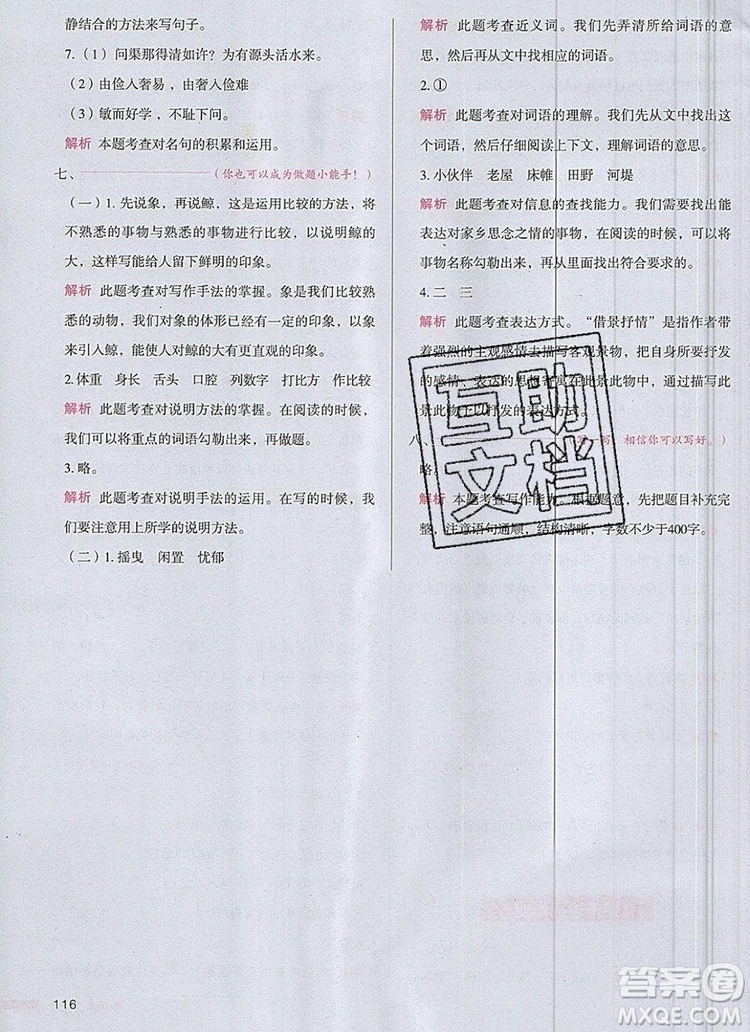 静结合的方法来写句子。
7.（1）问渠那得清如许？为有源头活水来。
（2）由俭入奢易，由奢入俭难
（3）敏而好学，不耻下问。
解析 本题考查对名句的积累和运用。
七、（你也可以成为做题小能手！）
（一）1.先说象，再说鲸，这是运用比较的方法，将
不熟悉的事物与熟悉的事物进行比较，以说明鲸的
大，这样写能给人留下鲜明的印象。
解析 此题考查对写作手法的掌握。象是我们比较
熟悉的动物，我们对象的体形已经有一定的印象，从象
来引入鲸，能使人对鲸的大有更直观的印象。
2.体重 身长 舌头 口腔 列数字 打比方 作比较
解析 此题考查对说明方法的掌握。在阅读的时候，
我们可以将重点的词语勾勒出来，再做题。
3.略。
解析 此题考查对说明手法的运用。在写的时候，我
们要注意用上所学的说明方法。
（二）1.摇曳 闲置 忧郁
解析 此题考查近义词。我们先弄清所给词语的意
思，然后在文中找相应的词语。
2.①
解析 此题考查对词语的理解。我们先从文中找出
这个词语，然后仔细阅读上下文，理解词语的意思。
3.小伙伴 老屋 床帷 田野 河堤
解析 此题考查对信息的查找能力。我们要关注能
表达对家乡思念之情的事物，在阅读的时候，可以将
事物名称勾勒出来，从而找出符合要求的事物。
4.二 三
解析 此题考查表达方式。“借景抒情”是指作者带
着强烈的主观感情去描写客观景物，把自身所要抒发
的感情、表达的思想寄寓在此景此物中，通过描写此
景此物予以抒发的表达方式。
八、（写一写，相信你可以写好。）
略。
解析 本题考查写作能力。根据题意，先把题目补充完
整，注意语句通顺，结构清晰，字数不少于400字。
互助
文档
116
答案圈
MXQE.COM